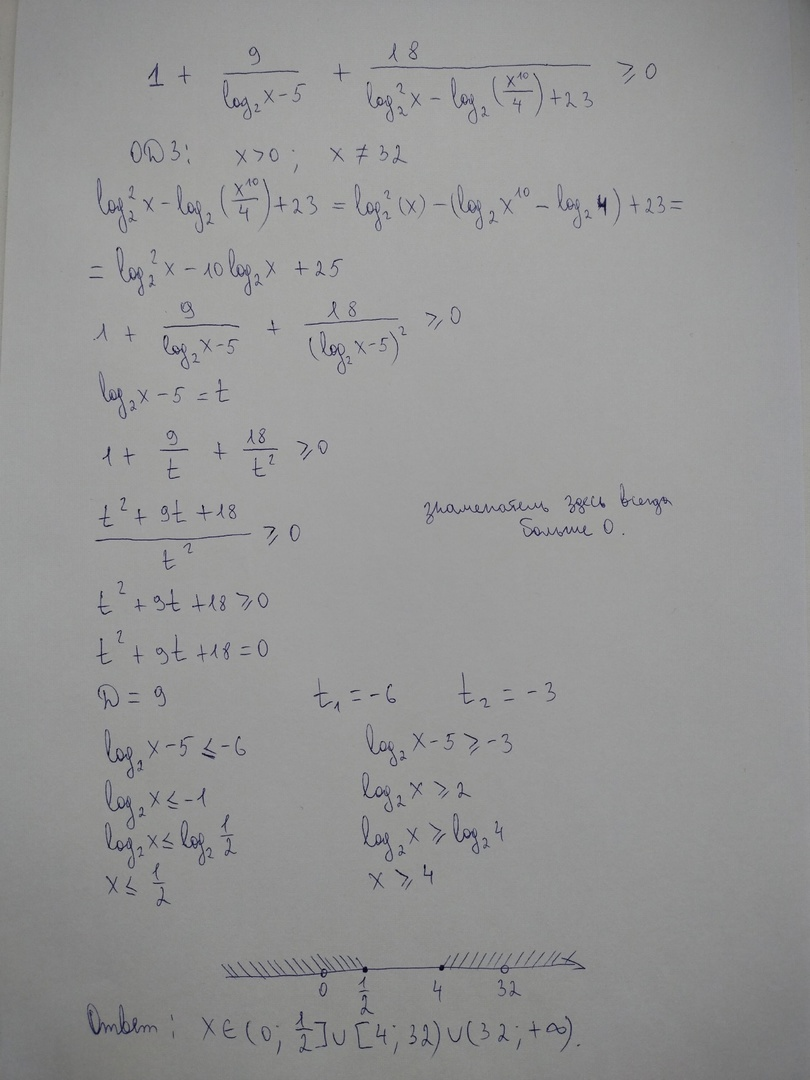 1 + 9/(log₂x-5) + 18/(log₂²x - log₂(x¹⁰/4)+23) ⩾ 0
ОДЗ: x>0; x≠32
log₂²x - log₂(x¹⁰/4)+23 = log₂²(x) - (log₂x¹⁰ - log₂4) + 23 =
= log₂²x - 10log₂x + 25
1 + 9/(log₂x-5) + 18/(log₂x-5)² ⩾ 0
log₂x - 5 = t
1 + 9/t + 18/t² ⩾ 0
(t² + 9t + 18)/t² ⩾ 0 знаменатель здесь всегда
больше 0.
t² + 9t + 18 ⩾ 0
t² + 9t + 18 = 0
D = 9 t₁ = -6 t₂ = -3
log₂x - 5 ⩽ -6 log₂x - 5 ⩾ -3
log₂x ⩽ -1 log₂x ⩾ 2
log₂x ⩽ log₂ 1/2 log₂x ⩾ log₂4
x ⩽ 1/2 x ⩾ 4
x
0 1/2 4 32
Ответ: x∈(0; 1/2]∪[4; 32)∪(32; +∞).